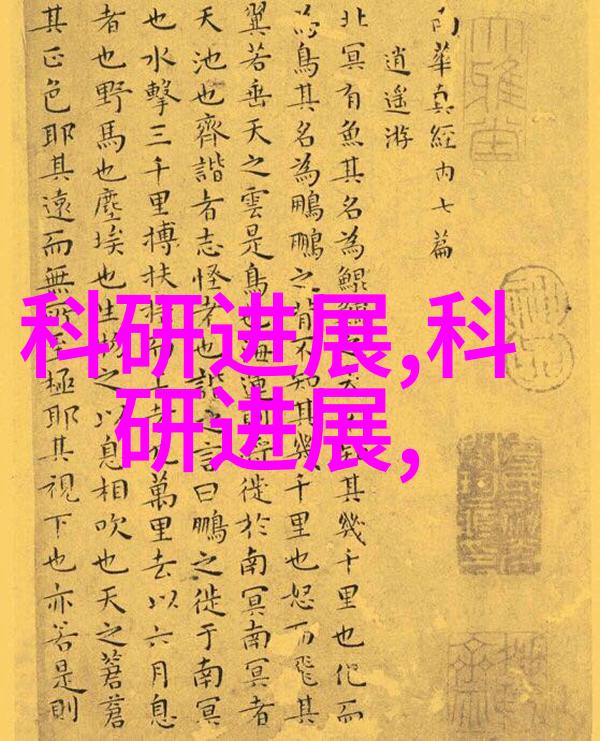 科研进展,科
研进展,
南華真經内七篇
逍遙游
北冥有魚其名為鯤其幾千里也化而
為鳥其名為鵬鵬之背不知其幾千里也怒而飛其
翼若垂天之雲是鳥也海運則將徙於南冥南冥者
天池也齊諧者志怪者也諧之言曰鵬之徙于南冥
也水擊三千里搏扶上者九萬里去以六月息
者也野馬也塵埃也生物之以息相吹也天之蒼蒼
其正色耶其遠而無所至極耶其視下也亦若是則